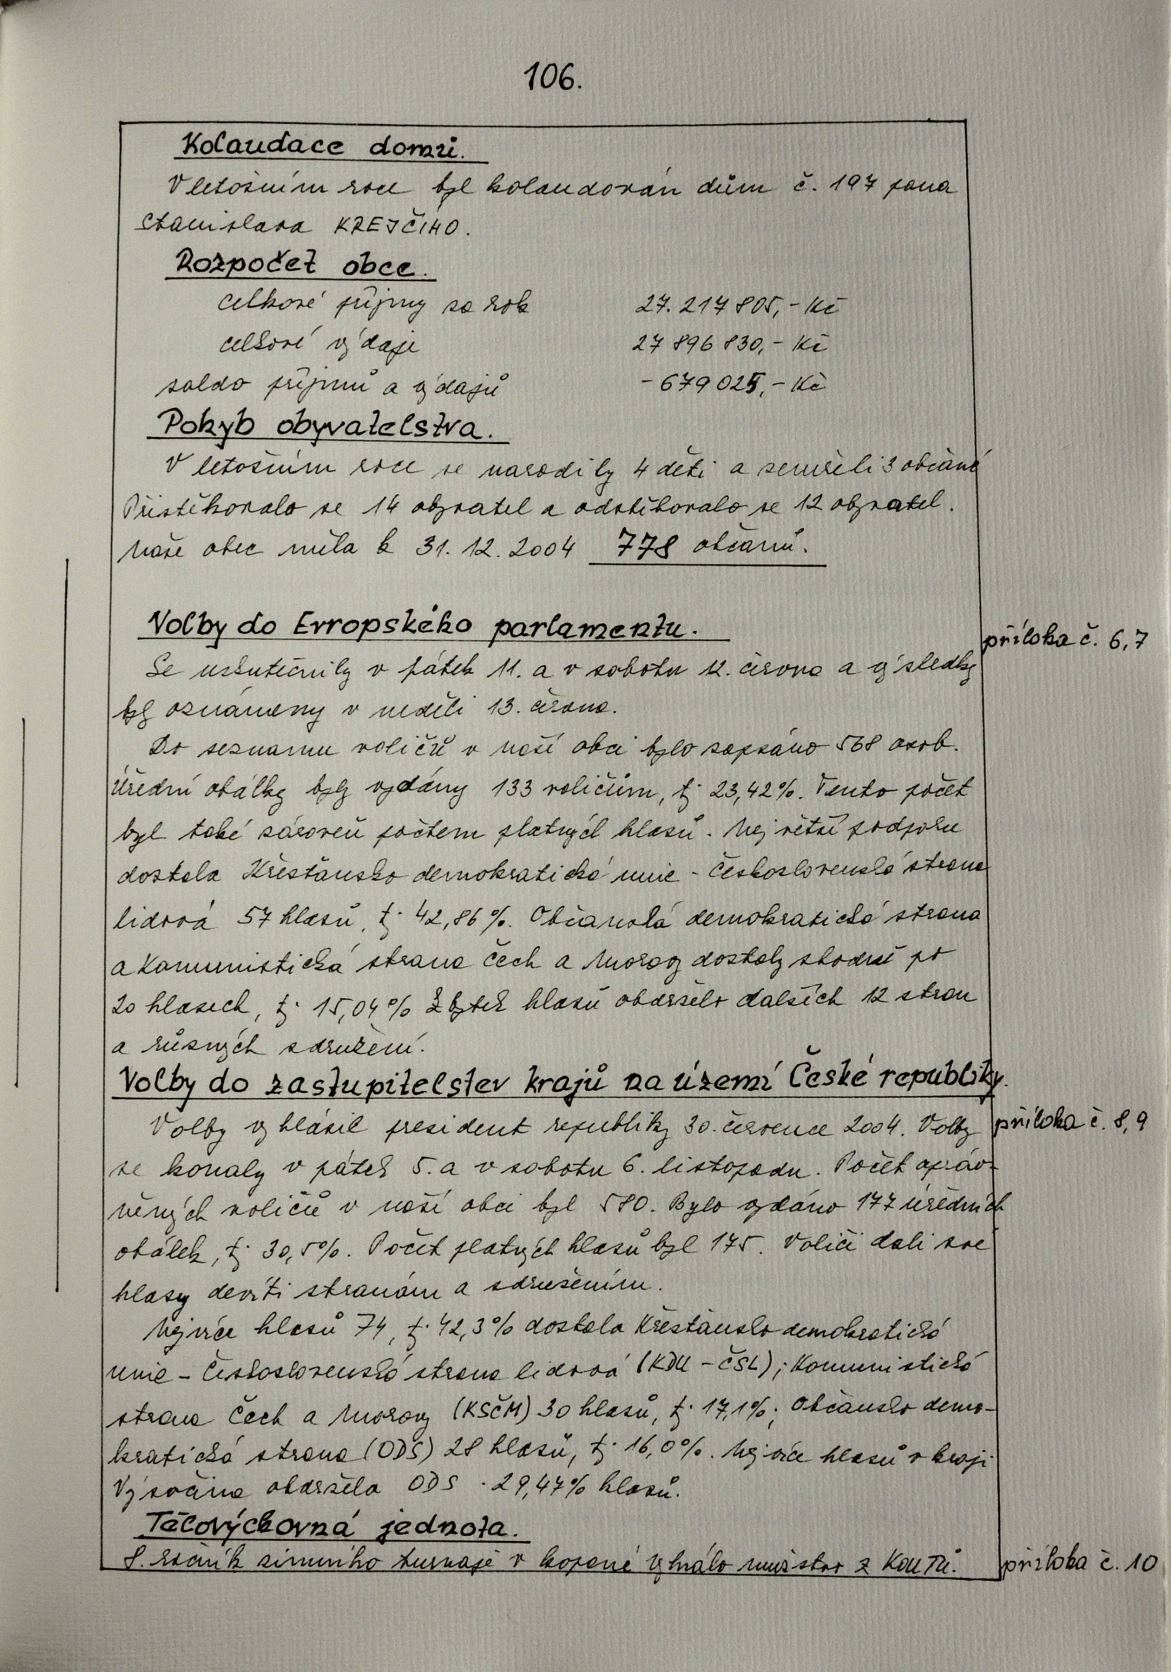 106.
Kolaudace domů.
V letošním roce byl kolaudován dům č. 197 pana
Stanislava KREJČÍHO.
Rozpočet obce.
celkové příjmy za rok 27.217 805,- Kč
celkové výdaje 27 896 830,- Kč
saldo příjmů a výdajů -679 025,- Kč
Pohyb obyvatelstva.
V letošním roce se narodily 4 děti a zemřeli 3 občané
Přistěhovalo se 14 obyvatel a odstěhovalo se 12 obyvatel.
Naše obec měla k 31. 12. 2004 778 občanů.
Volby do Evropského parlamentu.
příloha č. 6,7
Se uskutečnily v pátek 11. a v sobotu 12. června a výsledky
byly oznámeny v neděli 13. června.
Do seznamu voličů v naší obci bylo zapsáno 568 osob.
Úřední obálky byly vydány 133 voličům, tj. 23,42%. Tento počet
byl také zároveň počtem platných hlasů. Největší podporu
dostala Křesťansko demokratická unie - Československá strana
lidová 57 hlasů, tj. 42,86%. Občanská demokratická strana
a Komunistická strana Čech a Moravy dostaly shodně po
20 hlasech, tj. 15,04% Zbytek hlasů obdrželo dalších 12 stran
a různých sdružení.
Volby do zastupitelstev krajů na území České republiky.
Volby vyhlásil president republiky 30. července 2004. Volby
příloha č. 8,9
se konaly v pátek 5. a v sobotu 6. listopadu. Počet opráv-
něných voličů v naší obci byl 580. Bylo vydáno 177 úředních
obálek, tj. 30,5%. Počet platných hlasů byl 175. Voliči dali své
hlasy devíti stranám a sdružením.
Nejvíce hlasů 74, tj. 42,3% dostala Křesťansko demokratická
unie - Československá strana lidová (KDU - ČSL); Komunistická
strana Čech a Moravy (KSČM) 30 hlasů, tj. 17,1%; Občansko demo-
kratická strana (ODS) 28 hlasů, tj. 16,0%. Nejvíce hlasů v kraji
Vysočina obdržela ODS - 29,47% hlasů.
Tělovýchovná jednota.
8. ročník zimního turnaje v kopané vyhrálo mužstvo z KOUTŮ.
příloha č. 10